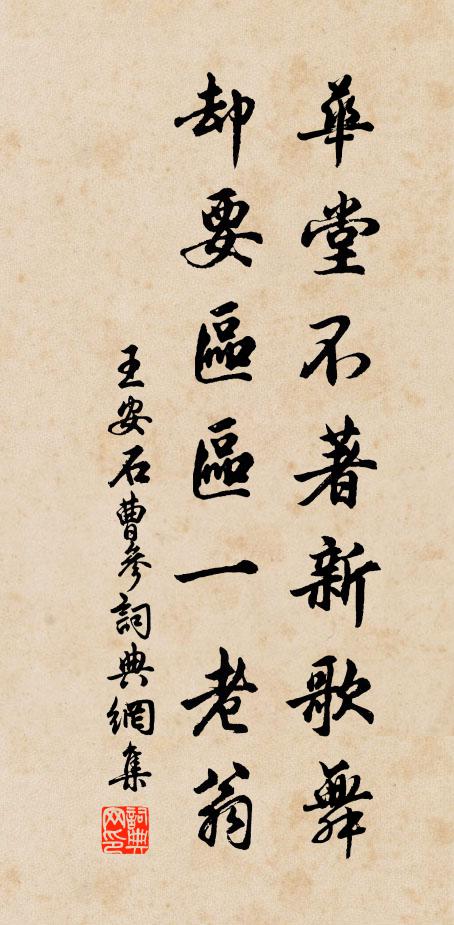 華堂不著新歌舞
却要區區一老翁
王安石曹參詞典網集
詞典网印